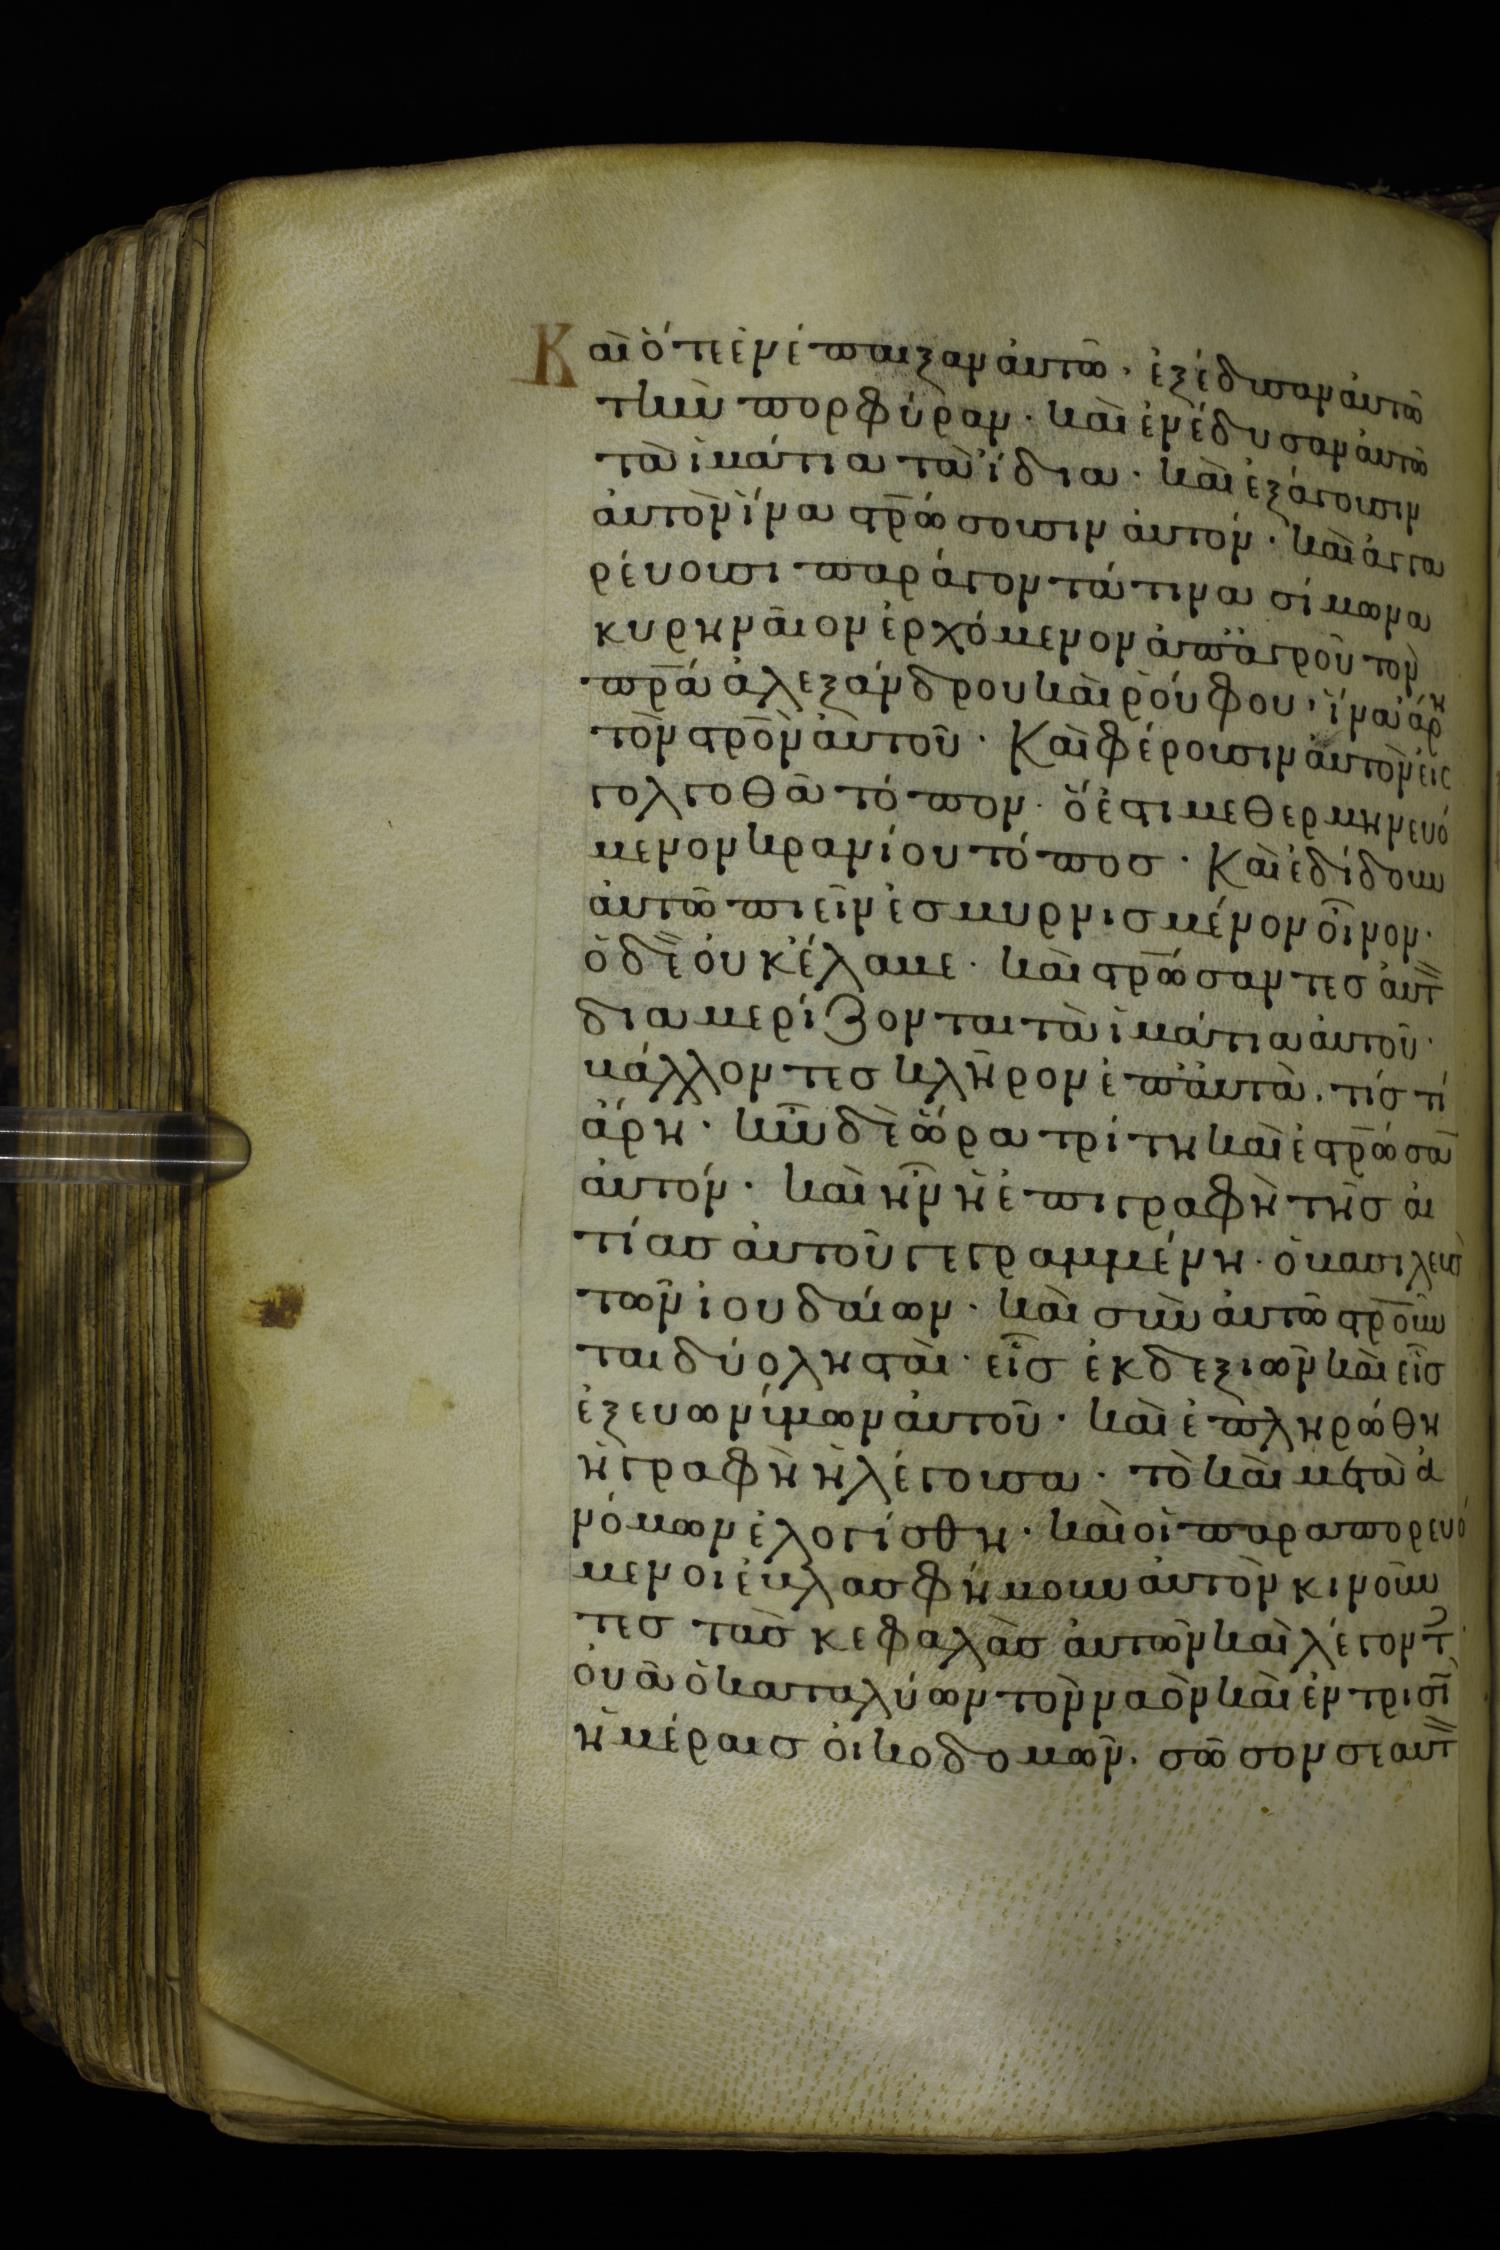 Καὶ ὅτε ἐνέπαιξαν αὐτῶ · ἐξέδυσαν αὐτὸ
τὴν πορφύραν · καὶ ἐνέδυσαν αὐτὸ
τὰ ἱμάτια τὰ ἴδια · καὶ ἐξάγουσιν
αὐτὸν ἵνα στρ̅ώσουσιν αὐτόν · καὶ ἀγγα
ρέυουσι παράγοντά τινα σίμωνα
κυρηναῖον ἐρχόμενον ἀπ' ἀγροῦ τὸν
πρ̅α ἀλεξάνδρου καὶ ῥούφου · ἵνα ἄρη
τὸν στρ̅ὸν αὐτοῦ · Καὶ φέρουσιν αὐτὸν εἰς
γολγοθᾶ τόπον · ὅ ἐστι μεθερμηνευό
μενον κρανίου τόπος · Καὶ ἐδίδουν
αὐτῶ πιεῖν ἐσμυρνισμένον οἶνον ·
ὁ δὲ οὐκ ἔλαβε · καὶ στρ̅ώσαντες αὐτ
διαμερίζονται τὰ ἱμάτια αὐτοῦ ·
βάλλοντες κλῆρον ἐπ' αὐτὰ · τίς τί
ἄρη · ἦν δὲ ὥρα τρίτη καὶ ἐστρ̅ωσα
αὐτόν · καὶ ἦν ἡ ἐπιγραφὴ τῆς αἰ
τίας αὐτοῦ γεγραμμένη · ὁ βασιλεὺς
τῶν ἰουδαίων · καὶ σὺν αὐτῶ στρ̅οῦν
ται δύο λησταὶ · εἷς ἐκ δεξιῶν καὶ εἷς
ἐξ ευωνύμων αὐτοῦ · καὶ ἐπληρώθη
ἡ γραφὴ ἡ λέγουσα · τὸ καὶ μετὰ ἀ
νόμων ἐλογίσθη · καὶ οἱ παραπορευό
μενοι ἐβλασφήμουν αὐτὸν κινοῦν
τες τὰς κεφαλὰς αὐτῶν καὶ λέγοντ
οὐὰ ὁ καταλύων τὸν ναὸν καὶ ἐν τρισὶ
ἡμέραις οἰκοδομῶν · σῶσον σεαυτ